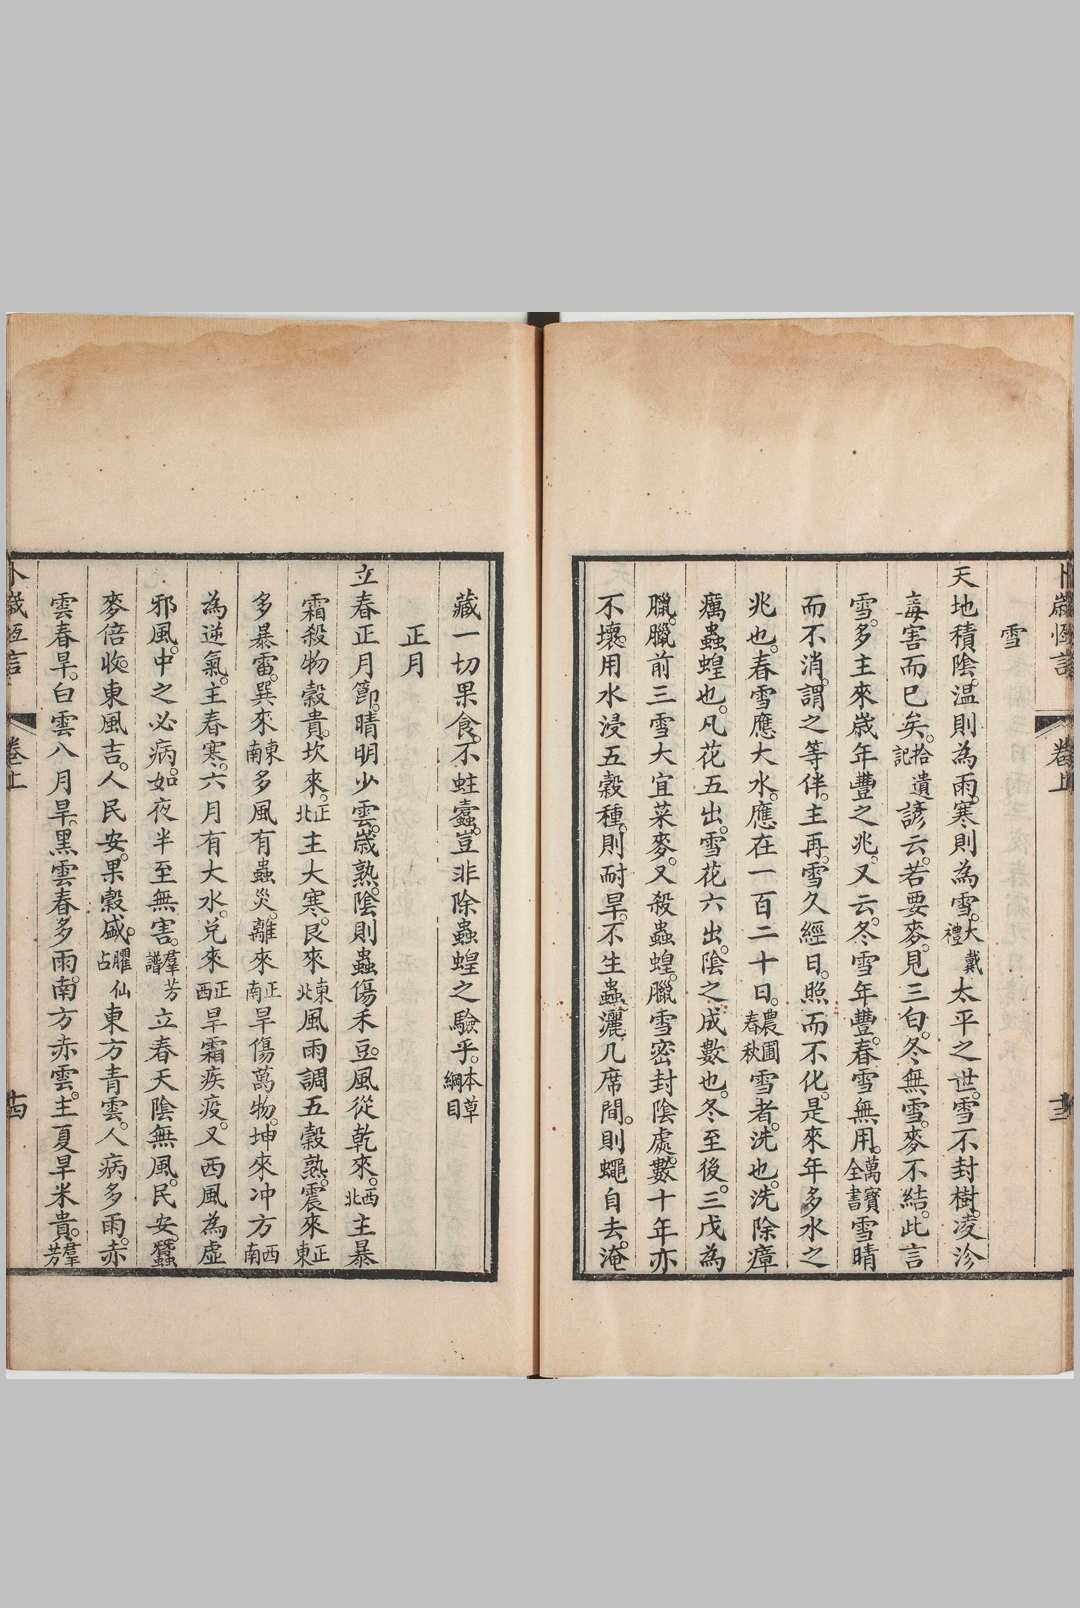 卜歲恆言 卷上 十三
雪
天地積陰。温則為雨。寒則為雪。大戴禮太平之世。雪不封樹。凌沴
毒害而已矣。拾遺記諺云。若要麥。見三白。冬無雪。麥不結。此言
雪。多主來歲年豐之兆。又云。冬雪年豐。春雪無用。萬寶全書雪晴
而不消。謂之等伴。主再。雪久經日。照而不化。是來年多水之
兆也。春雪應大水。應在一百二十日。農圃春秋雪者。洗也。洗除瘴
癘蟲蝗也。凡花五出。雪花六出。陰之成數也。冬至後。三戊為
臘。臘前三雪大宜菜麥。又殺蟲蝗。臘雪密封陰處。數十年亦
不壞。用水浸五穀種。則耐旱。不生蟲。灑几席間。則蠅自去。淹
藏一切果食。不蛀蠹。豈非除蟲蝗之驗乎。本草綱目
正月
立春正月節。晴明少雲。歲熟。陰則蟲傷禾豆。風從乾來。西北主暴
霜殺物穀貴。坎來。正北主大寒。艮來東北風雨調五穀熟。震來正東
多暴雷。巽來東南多風有蟲災。離來正南旱傷萬物。坤來冲方西南
為逆氣。主春寒。六月有大水。兌來正西旱霜疾疫。又西風為虛
邪風。中之必病。如夜半至無害。羣芳譜立春天陰無風。民安。蠶
麥倍收。東風吉。人民安。果穀盛。臞仙占東方青雲。人病多雨。赤
雲春旱。白雲八月旱。黑雲春多雨。南方赤雲。主夏旱米貴。羣芳
卜歲恆言 卷上 十四